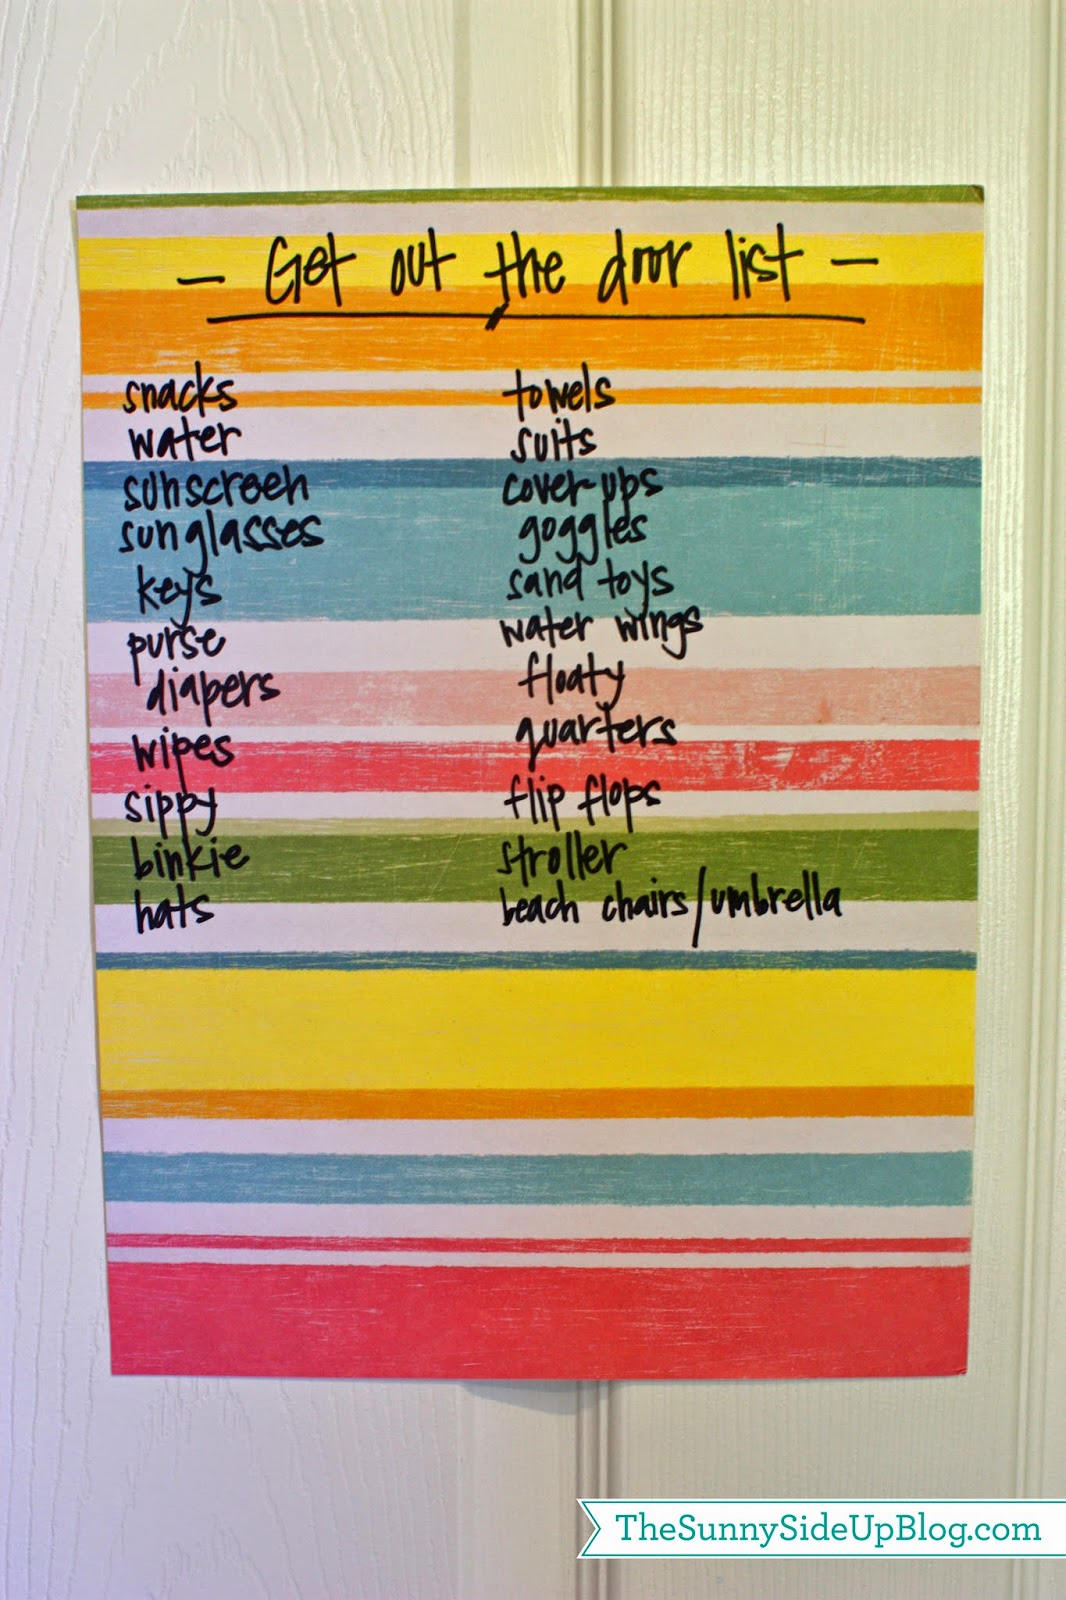 - Get out the door list -
snacks
water
sunscreen
sunglasses
keys
purse
diapers
wipes
sippy
binkie
hats
towels
suits
cover-ups
goggles
sand toys
water wings
floaty
quarters
flip flops
stroller
beach chairs/umbrella
TheSunnySideUpBlog.com